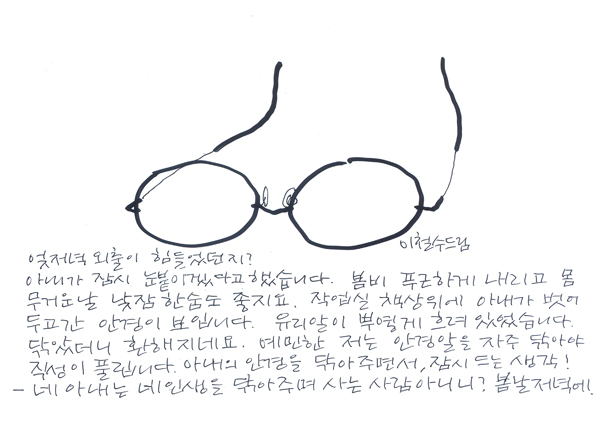 이철수드림
엊저녁 외출이 힘들었던지?
아내가 잠시 눈붙이겠다고 했습니다. 봄비 푸근하게 내리고 몸
무거운날 낮잠 한숨도 좋지요. 작업실 책상위에 아내가 벗어
두고간 안경이 보입니다. 유리알이 뿌옇게 흐려 있었습니다.
닦았더니 환해지네요. 예민한 저는 안경알을 자주 닦아야
직성이 풀립니다. 아내의 안경을 닦아주면서, 잠시 드는 생각!
- 네 아내는 네인생을 닦아주며 사는 사람 아니니? 봄날저녁에.